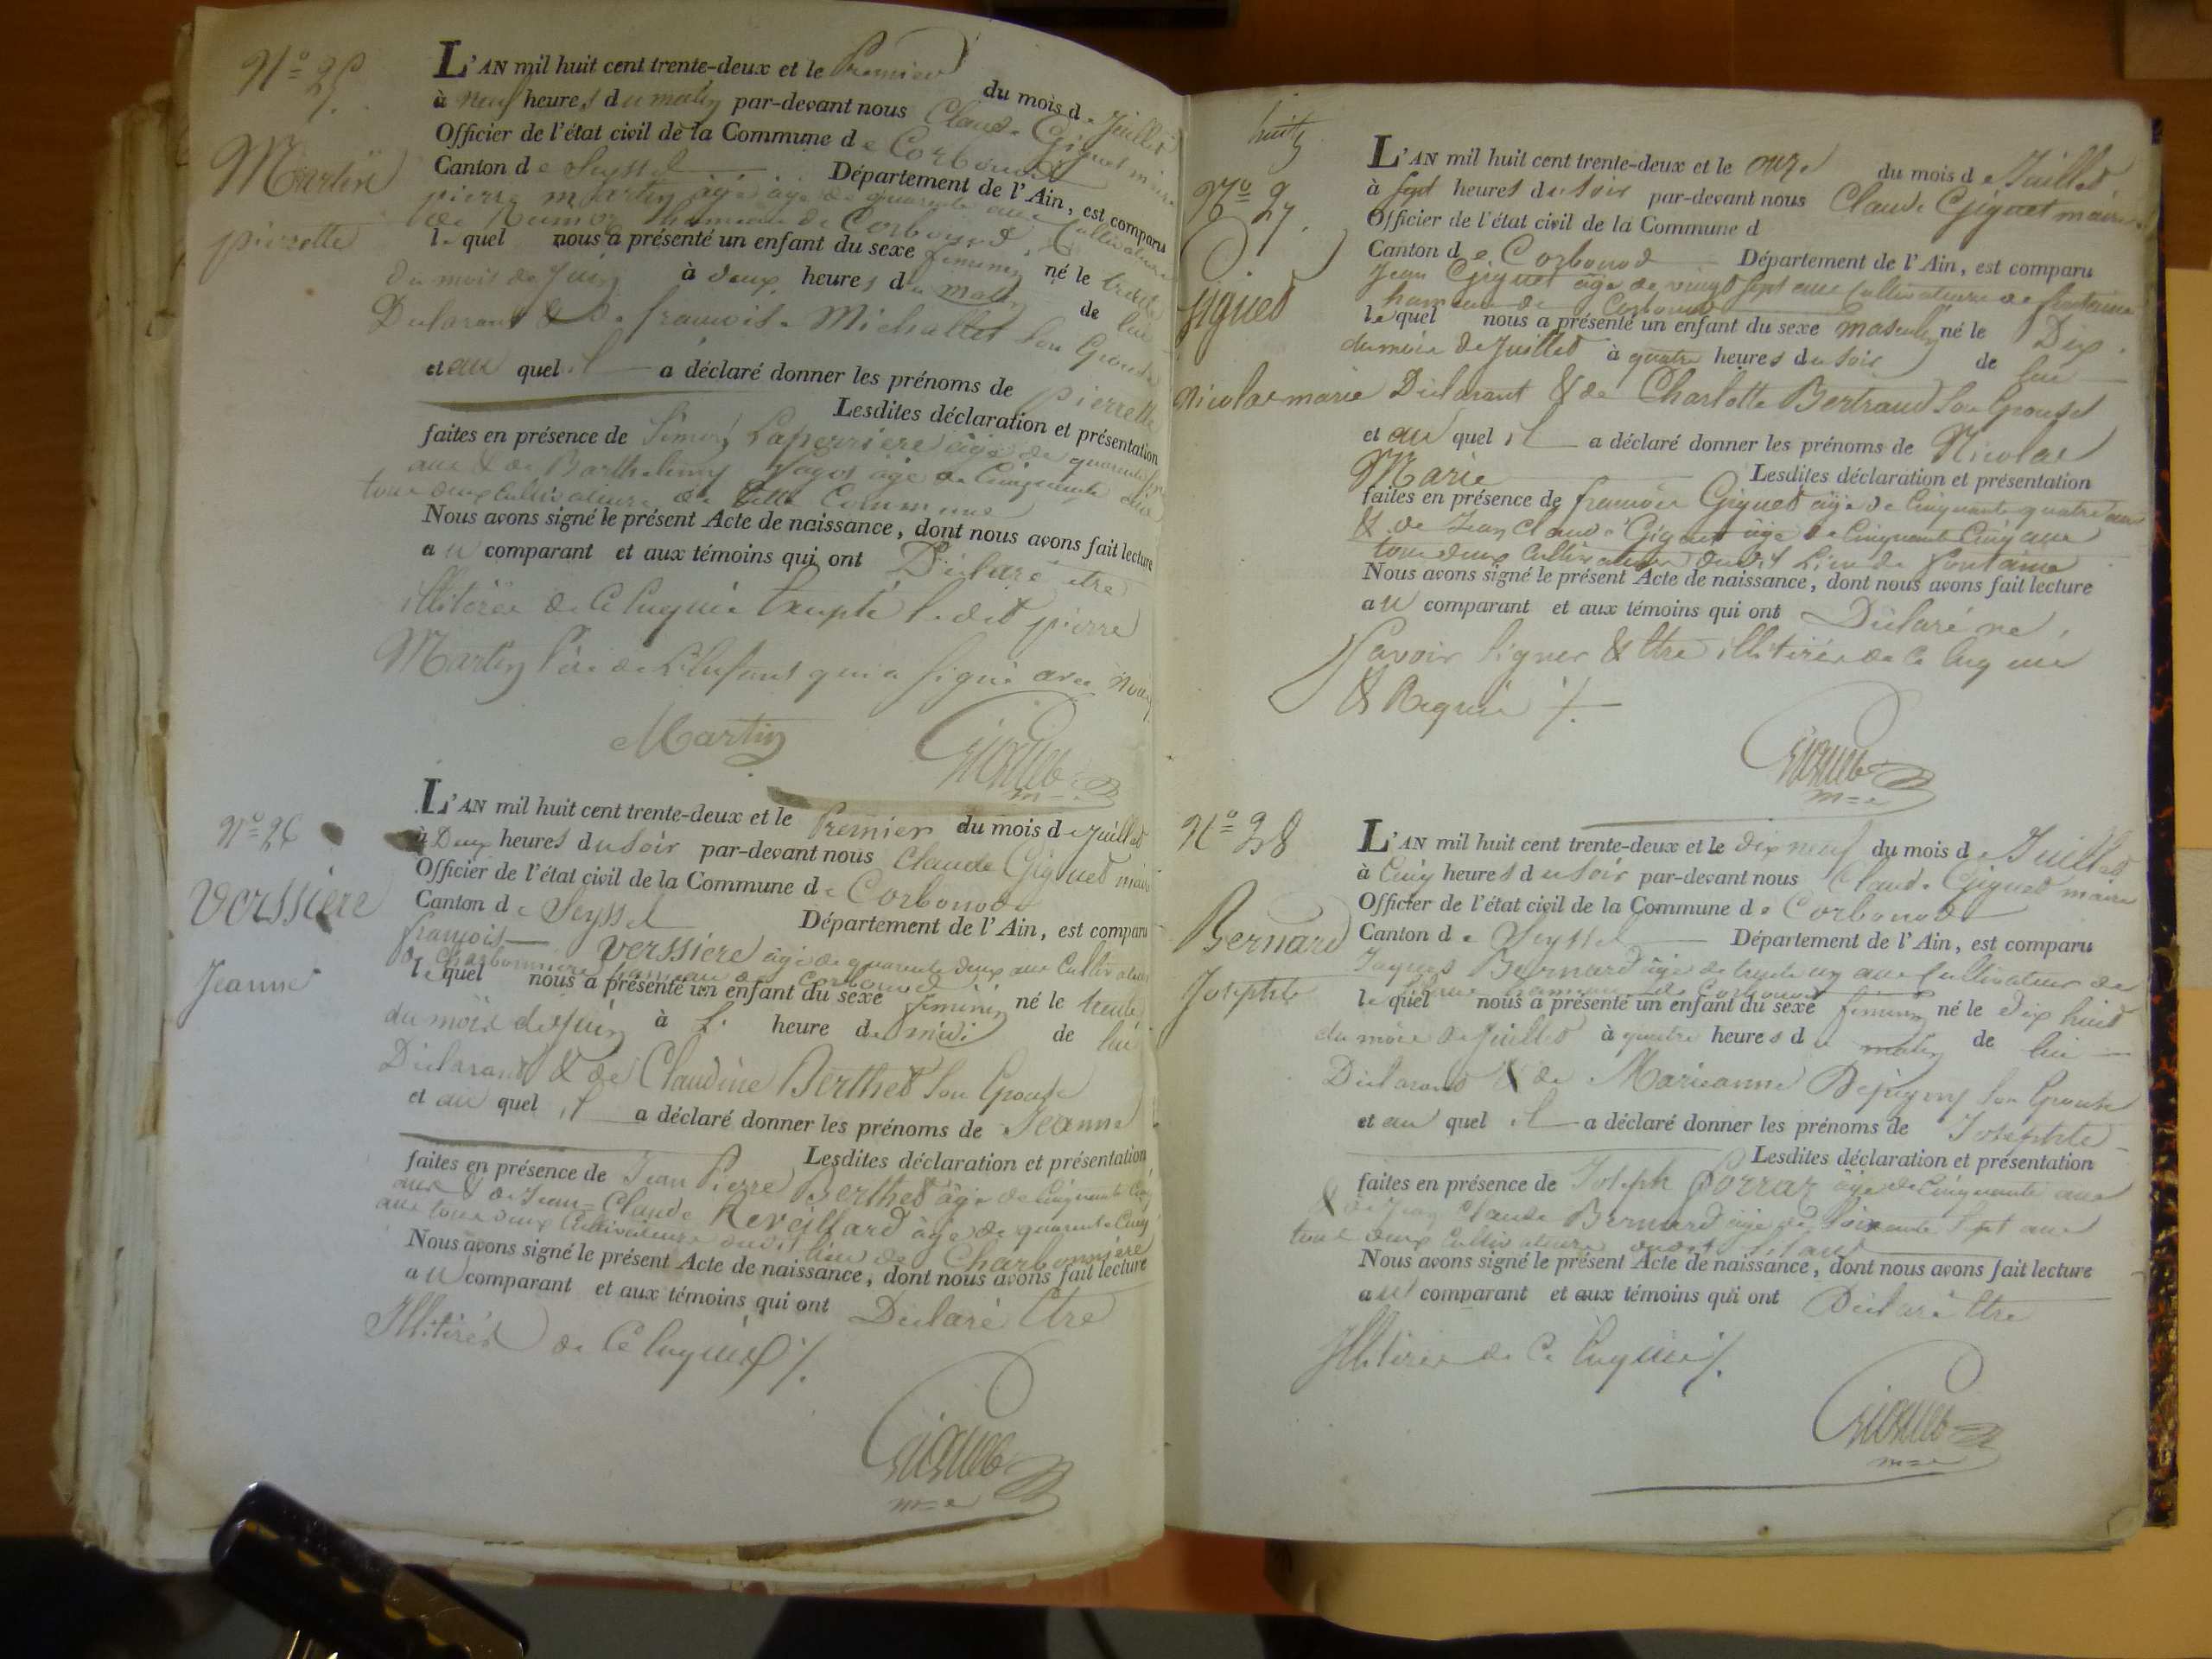 N° 25
Martin
pierrette
L'AN mil huit cent trente-deux et le Premier du mois de Juillet
à neuf heures du matin par-devant nous Claude Giguet maire
Officier de l'état civil de la Commune de Corbonod
Canton de Seyssel Département de l'Ain, est comparu
pierre martin âgé de quarante ans Cultivateur
hameau de Corbonod
lequel nous a présenté un enfant du sexe feminin né le trente
du mois de Juin à deux heures du matin de lui
Declarant & de francoise Michallet Son Epouse
et au quel il a déclaré donner les prénoms de pierrette
Lesdites déclaration et présentation
faites en présence de Simon Laperriere âgé de quarante
ans & de Barthelemy âgé de Cinquante
tous deux Cultivateurs de Cette Commune
Nous avons signé le présent Acte de naissance, dont nous avons fait lecture
au comparant et aux témoins qui ont Déclaré être
illitérés de ce Enquis Excepté le dit pierre
Martin Père de L'Enfant qui a signé avec Nous
Martin Giguet m=e
N° 26
Verssiere
Jeanne
L'AN mil huit cent trente-deux et le Premier du mois de Juillet
à Deux heures du Soir par-devant nous Claude Giguet maire
Officier de l'état civil de la Commune de Corbonod
Canton de Seyssel Département de l'Ain, est comparu
françois Verssiere âgé de quarante deux ans Cultivateur
de Charbonniere hameau de Corbonod
lequel nous a présenté un enfant du sexe feminin né le trente
du mois de Juin à heure de midi de lui
Déclarant & de Claudine Berthet Son Epouse
et au quel il a déclaré donner les prénoms de Jeanne
Lesdites déclaration et présentation
faites en présence de Jean Pierre Berthet âgé de Cinquante Cinq
ans & de Jean=Claude Reveillard âgé de quarante Cinq
ans tous deux Cultivateurs dudit lieu de Charbonniere
Nous avons signé le présent Acte de naissance, dont nous avons fait lecture
au comparant et aux témoins qui ont Déclaré Etre
Illitérés de Ce Enquis ./.
Giguet
m=e
huit
N° 27.
Giguet
Nicolas marie
L'AN mil huit cent trente-deux et le onze du mois de Juillet
à Sept heures du Soir par-devant nous Claude Giguet maire
Officier de l'état civil de la Commune d
Canton de Corbonod Département de l'Ain, est comparu
Jean Giguet âgé de vingt Sept ans Cultivateur de fontaine
hameau de Corbonod
lequel nous a présenté un enfant du sexe masculin né le Dix
du mois de Juillet à quatre heures du Soir de lui
Déclarant & de Charlotte Bertrand Son Epouse
et au quel il a déclaré donner les prénoms de Nicolas
Marie Lesdites déclaration et présentation
faites en présence de francois Giguet âgé de Cinquante quatre ans
& de Jean Claude Giguet âgé de Cinquante Cinq ans
tous deux Cultivateurs dudit Lieu de fontaine
Nous avons signé le présent Acte de naissance, dont nous avons fait lecture
au comparant et aux témoins qui ont Déclaré ne
Savoir Signer & Etre illitérés de Ce Enquis
& Requis ./.
Giguet
m=e
N° 28
Bernard
Josephte
L'AN mil huit cent trente-deux et le dix neuf du mois de Juillet
à Cinq heures du Soir par-devant nous Claude Giguet maire
Officier de l'état civil de la Commune de Corbonod
Canton de Seyssel Département de l'Ain, est comparu
Jaques Bernard âgé de trente un ans Cultivateur de
hameau de Corbonod
lequel nous a présenté un enfant du sexe feminin né le dix huit
du mois de Juillet à quatre heures du matin de lui
Déclarant & de Marieanne Son Epouse
et au quel il a déclaré donner les prénoms de Josephte
Lesdites déclaration et présentation
faites en présence de Joseph âgé de Cinquante ans
& de Jean Claude Bernard âgé de Soixante Sept ans
tous deux Cultivateurs dudit
Nous avons signé le présent Acte de naissance, dont nous avons fait lecture
au comparant et aux témoins qui ont Déclaré Etre
Illitérés de Ce Enquis ./.
Giguet
m=e